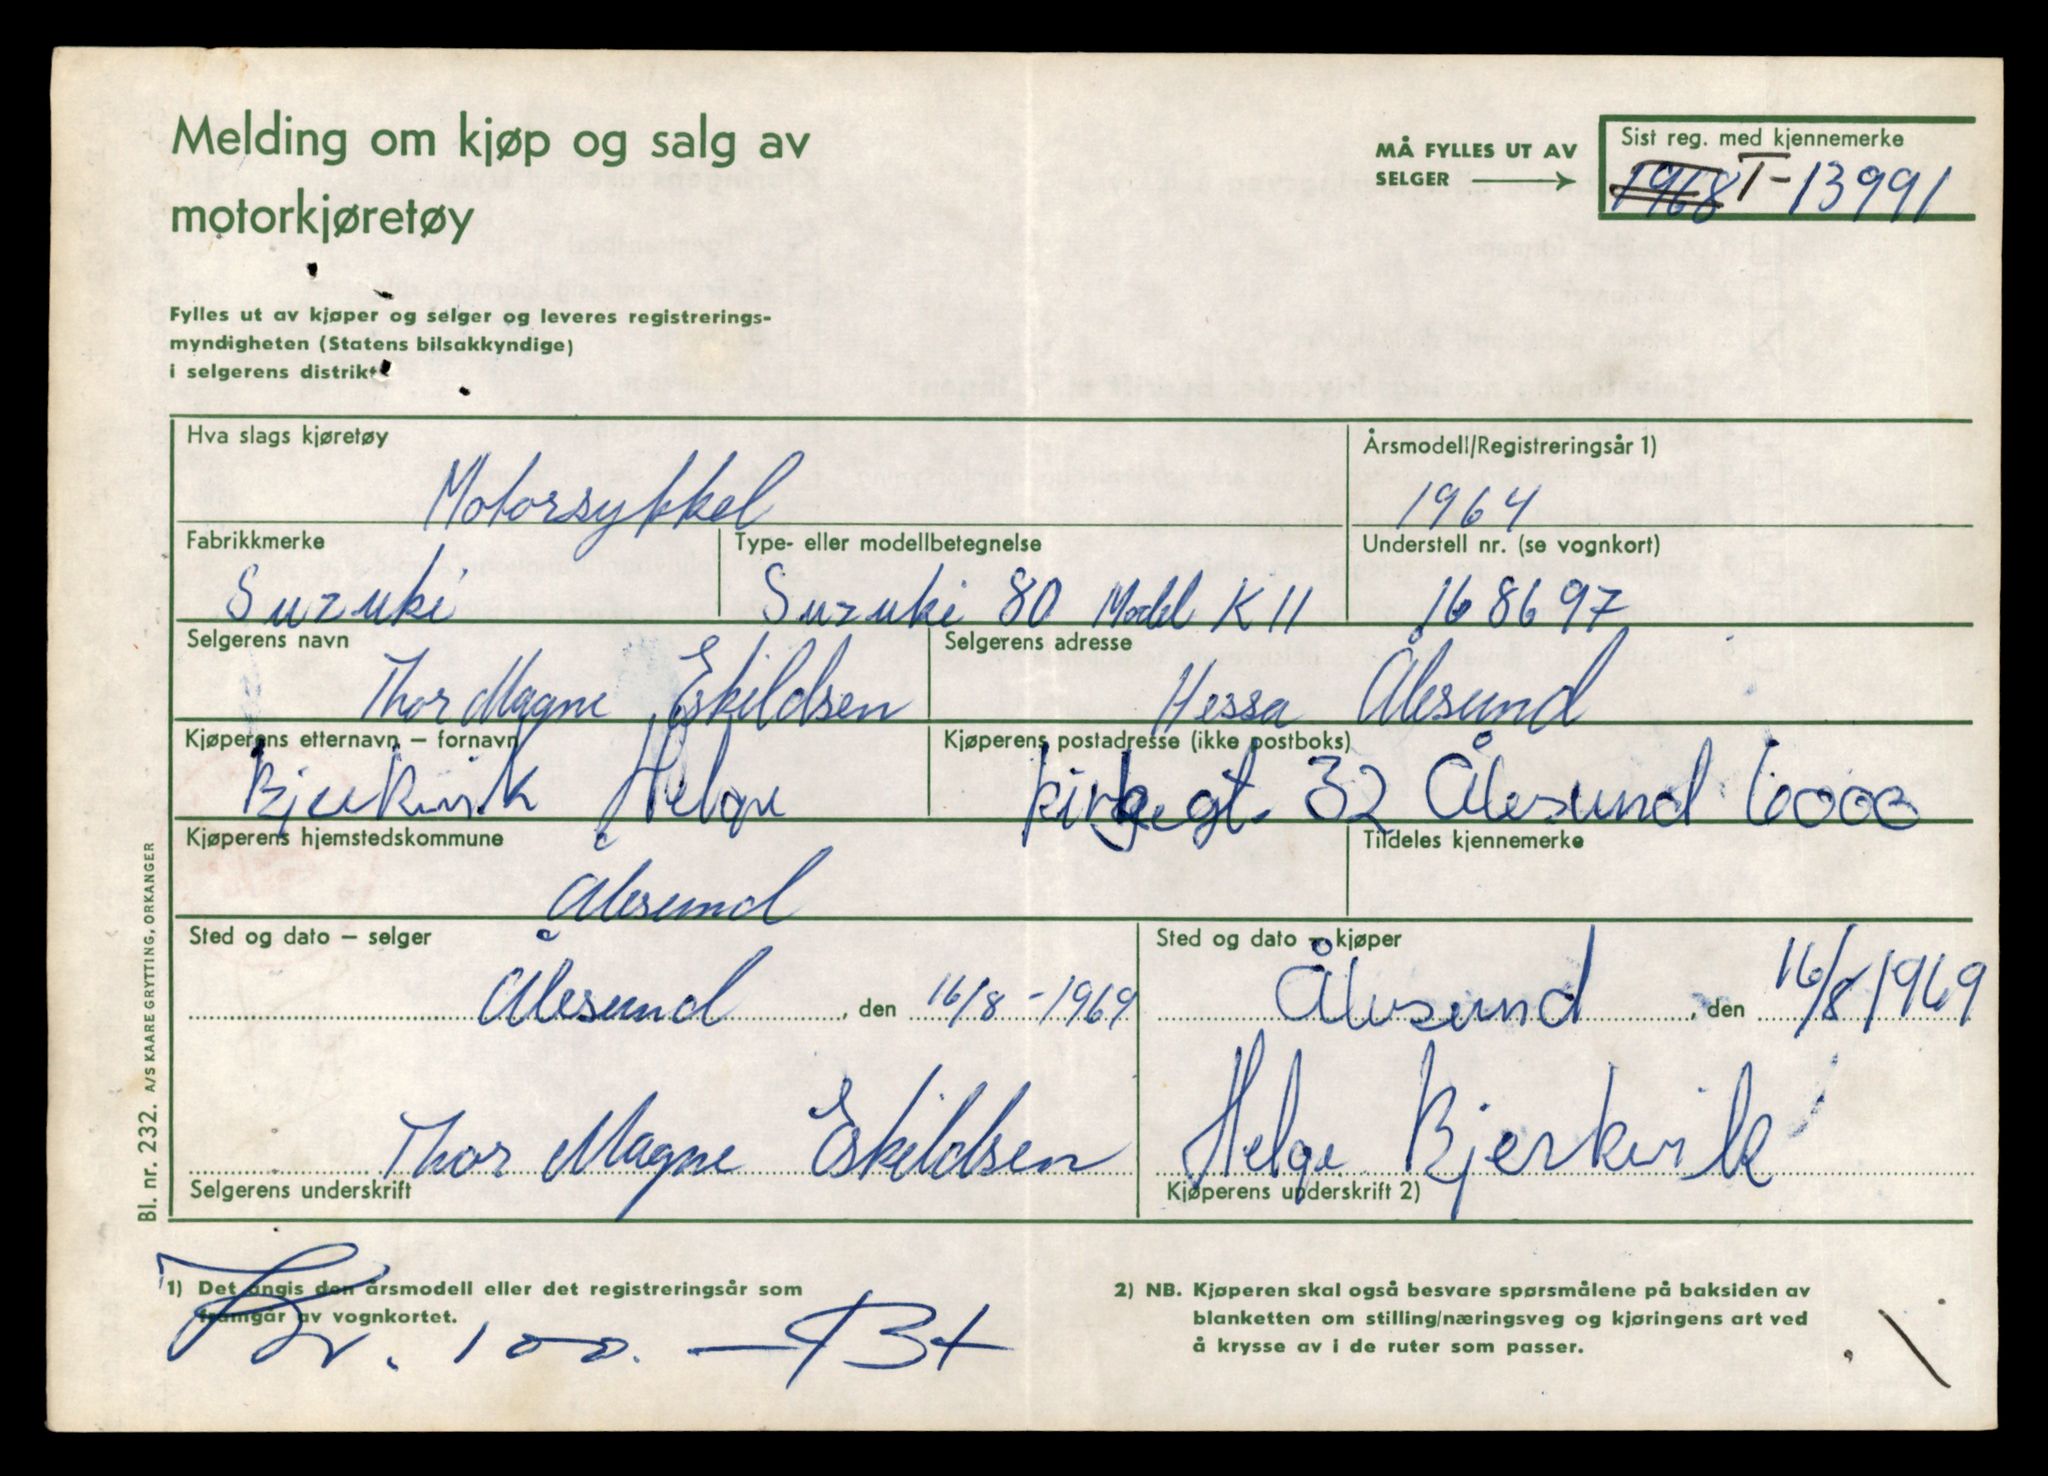 Melding om kjøp og salg av
motorkjøretøy
MÅ FYLLES UT AV
SELGER
Sist reg. med kjennemerke
1968 T-13991
Fylles ut av kjøper og selger og leveres registrerings-
myndigheten (Statens bilsakkyndige)
i selgerens distrikt
Hva slags kjøretøy
Motorsykkel
Årsmodell/Registreringsår 1)
1964
Fabrikkmerke
Suzuki
Type- eller modellbetegnelse
Suzuki 80 Modell K 11
Understell nr. (se vognkort)
168697
Selgerens navn
Thor Magne Eskildsen
Selgerens adresse
Hessa Ålesund
Kjøperens etternavn – fornavn
Bjerkvik Helge
Kjøperens postadresse (ikke postboks)
32 Ålesund 6000
Kjøperens hjemstedskommune
Ålesund
Tildeles kjennemerke
Sted og dato – selger
Ålesund, den 16/8-1969
Sted og dato – kjøper
Ålesund, den 16/8 1969
Thor Magne Eskildsen
Selgerens underskrift
Helge Bjerkvik
Kjøperens underskrift 2)
1) Det angis den årsmodell eller det registreringsår som
framgår av vognkortet.
Kr. 100.—
2) NB. Kjøperen skal også besvare spørsmålene på baksiden av
blanketten om stilling/næringsveg og kjøringens art ved
å krysse av i de ruter som passer.
Bl. nr. 232. A/S KAARE GRYTTING, ORKANGER